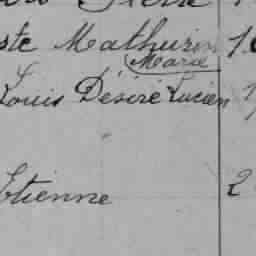 ste Mathurin
Marie
Louis Désiré Lucien
Etienne 2